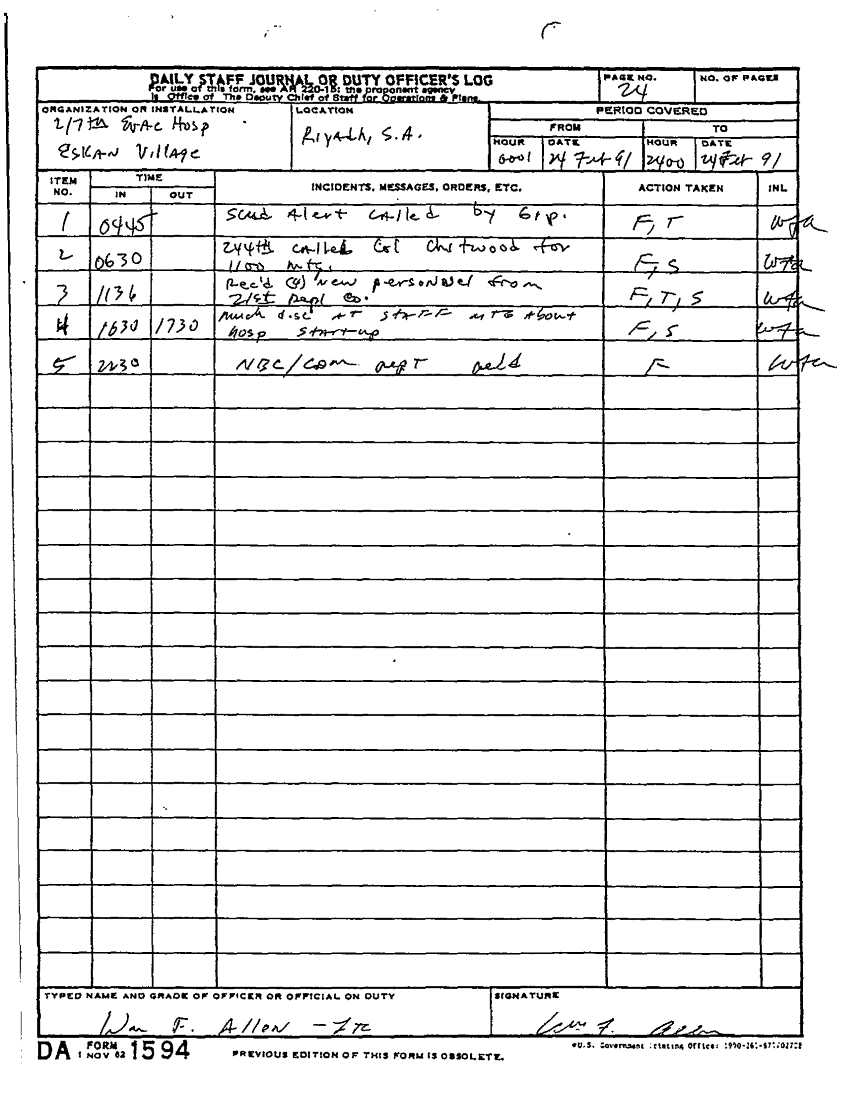 DAILY STAFF JOURNAL OR DUTY OFFICER'S LOG
For use of this form, see AR 220-15; the proponent agency
is Office of The Deputy Chief of Staff for Operations & Plans.
PAGE NO.
24
NO. OF PAGES
ORGANIZATION OR INSTALLATION
217th Evac Hosp
ESKAN Village
LOCATION
Riyadh, S.A.
PERIOD COVERED
FROM
TO
HOUR
0001
DATE
24 Feb 91
HOUR
2400
DATE
24 Feb 91
ITEM NO.
TIME
IN
OUT
INCIDENTS, MESSAGES, ORDERS, ETC.
ACTION TAKEN
INL
1 0445 Scud Alert called by Grp. F, T wfa
2 0630 244th called Col Chitwood for
1100 mtg. F, S wfa
3 1136 Rec'd (4) new personnel from
21st Repl Co. F, T, S wfa
4 1630 1730 Much disc AT STAFF MTG About
Hosp start-up F, S wfa
5 2230 NBC/Com F wfa
TYPED NAME AND GRADE OF OFFICER OR OFFICIAL ON DUTY
Wm F. Allen -
SIGNATURE
Wm F. Allen
DA FORM 1 NOV 62 1594
PREVIOUS EDITION OF THIS FORM IS OBSOLETE.
*U.S. Government Printing Office: